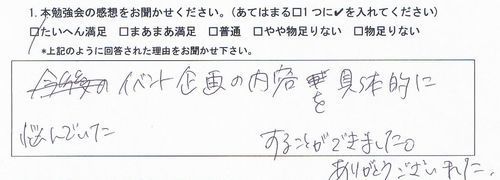 1. 本勉強会の感想をお聞かせください。（あてはまる□1つに✔を入れてください）
□たいへん満足　□まあまあ満足　□普通　□やや物足りない　□物足りない
*上記のように回答された理由をお聞かせ下さい。
イベント企画の内容を具体的に
悩んでいた　することができました。
ありがとうございました。